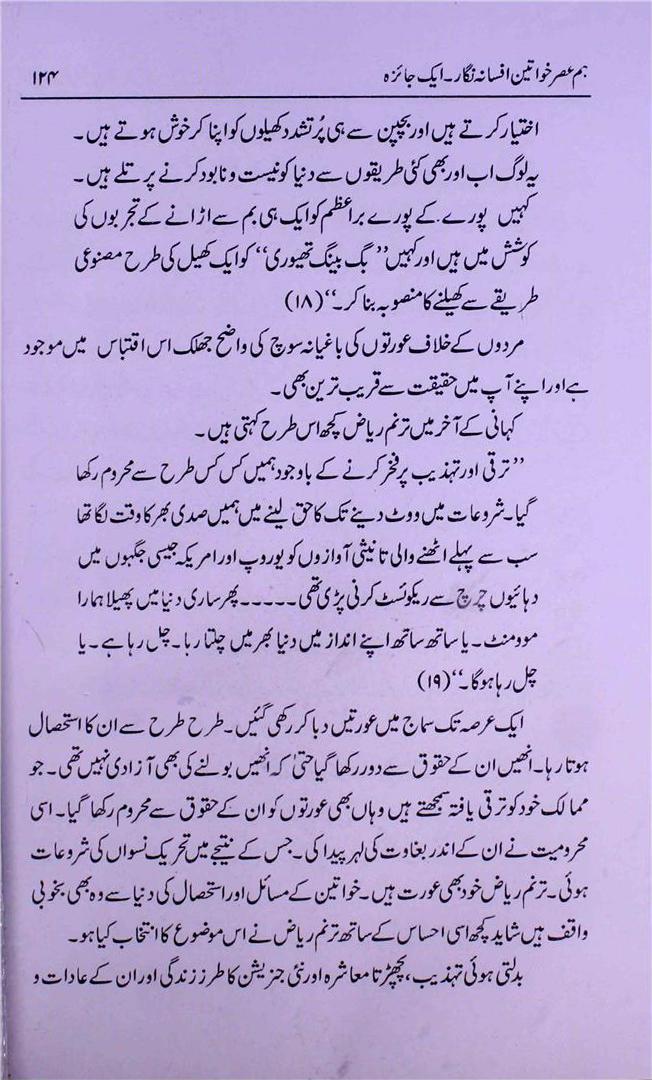 ہم عصر خواتین افسانہ نگار۔ ایک جائزہ ۱۲۴
اختیار کرتے ہیں اور بچپن سے ہی پُر تشدد کھیلوں کو اپنا کر خوش ہوتے ہیں۔
یہ لوگ اب اور بھی کئی طریقوں سے دنیا کو نیست و نابود کرنے پر تلے ہیں۔
کہیں پورے کے پورے براعظم کو ایک ہی بم سے اڑانے کے تجربوں کی
کوشش میں ہیں اور کہیں ”بگ بینگ تھیوری“ کو ایک کھیل کی طرح مصنوعی
طریقے سے کھیلنے کا منصوبہ بنا کر۔“ (۱۸)
مردوں کے خلاف عورتوں کی باغیانہ سوچ کی واضح جھلک اس اقتباس میں موجود
ہے اور اپنے آپ میں حقیقت سے قریب ترین بھی۔
کہانی کے آخر میں ترنم ریاض کچھ اس طرح کہتی ہیں۔
”ترقی اور تہذیب پر فخر کرنے کے باوجود ہمیں کس کس طرح سے محروم رکھا
گیا۔ شروعات میں ووٹ دینے تک کا حق لینے میں ہمیں صدی بھر کا وقت لگا تھا
سب سے پہلے اٹھنے والی تانیثی آوازوں کو یوروپ اور امریکہ جیسی جگہوں میں
دہائیوں چرچ سے ریکوئسٹ کرنی پڑی تھی ۔۔۔۔۔ پھر ساری دنیا میں پھیلا ہمارا
موومنٹ۔ یا ساتھ ساتھ اپنے انداز میں دنیا بھر میں چلتا رہا۔ چل رہا ہے۔ یا
چل رہا ہوگا۔“ (۱۹)
ایک عرصہ تک سماج میں عورتیں دبا کر رکھی گئیں۔ طرح طرح سے ان کا استحصال
ہوتا رہا۔ انھیں ان کے حقوق سے دور رکھا گیا حتیٰ کہ انھیں بولنے کی بھی آزادی نہیں تھی۔ جو
ممالک خود کو ترقی یافتہ سمجھتے ہیں وہاں بھی عورتوں کو ان کے حقوق سے محروم رکھا گیا۔ اسی
محرومیت نے ان کے اندر بغاوت کی لہر پیدا کی۔ جس کے نتیجے میں تحریک نسواں کی شروعات
ہوئی۔ ترنم ریاض خود بھی عورت ہیں۔ خواتین کے مسائل اور استحصال کی دنیا سے وہ بھی بخوبی
واقف ہیں شاید کچھ اسی احساس کے ساتھ ترنم ریاض نے اس موضوع کا انتخاب کیا ہو۔
بدلتی ہوئی تہذیب، پچھڑتا معاشرہ اور نئی جنریشن کا طرز زندگی اور ان کے عادات و